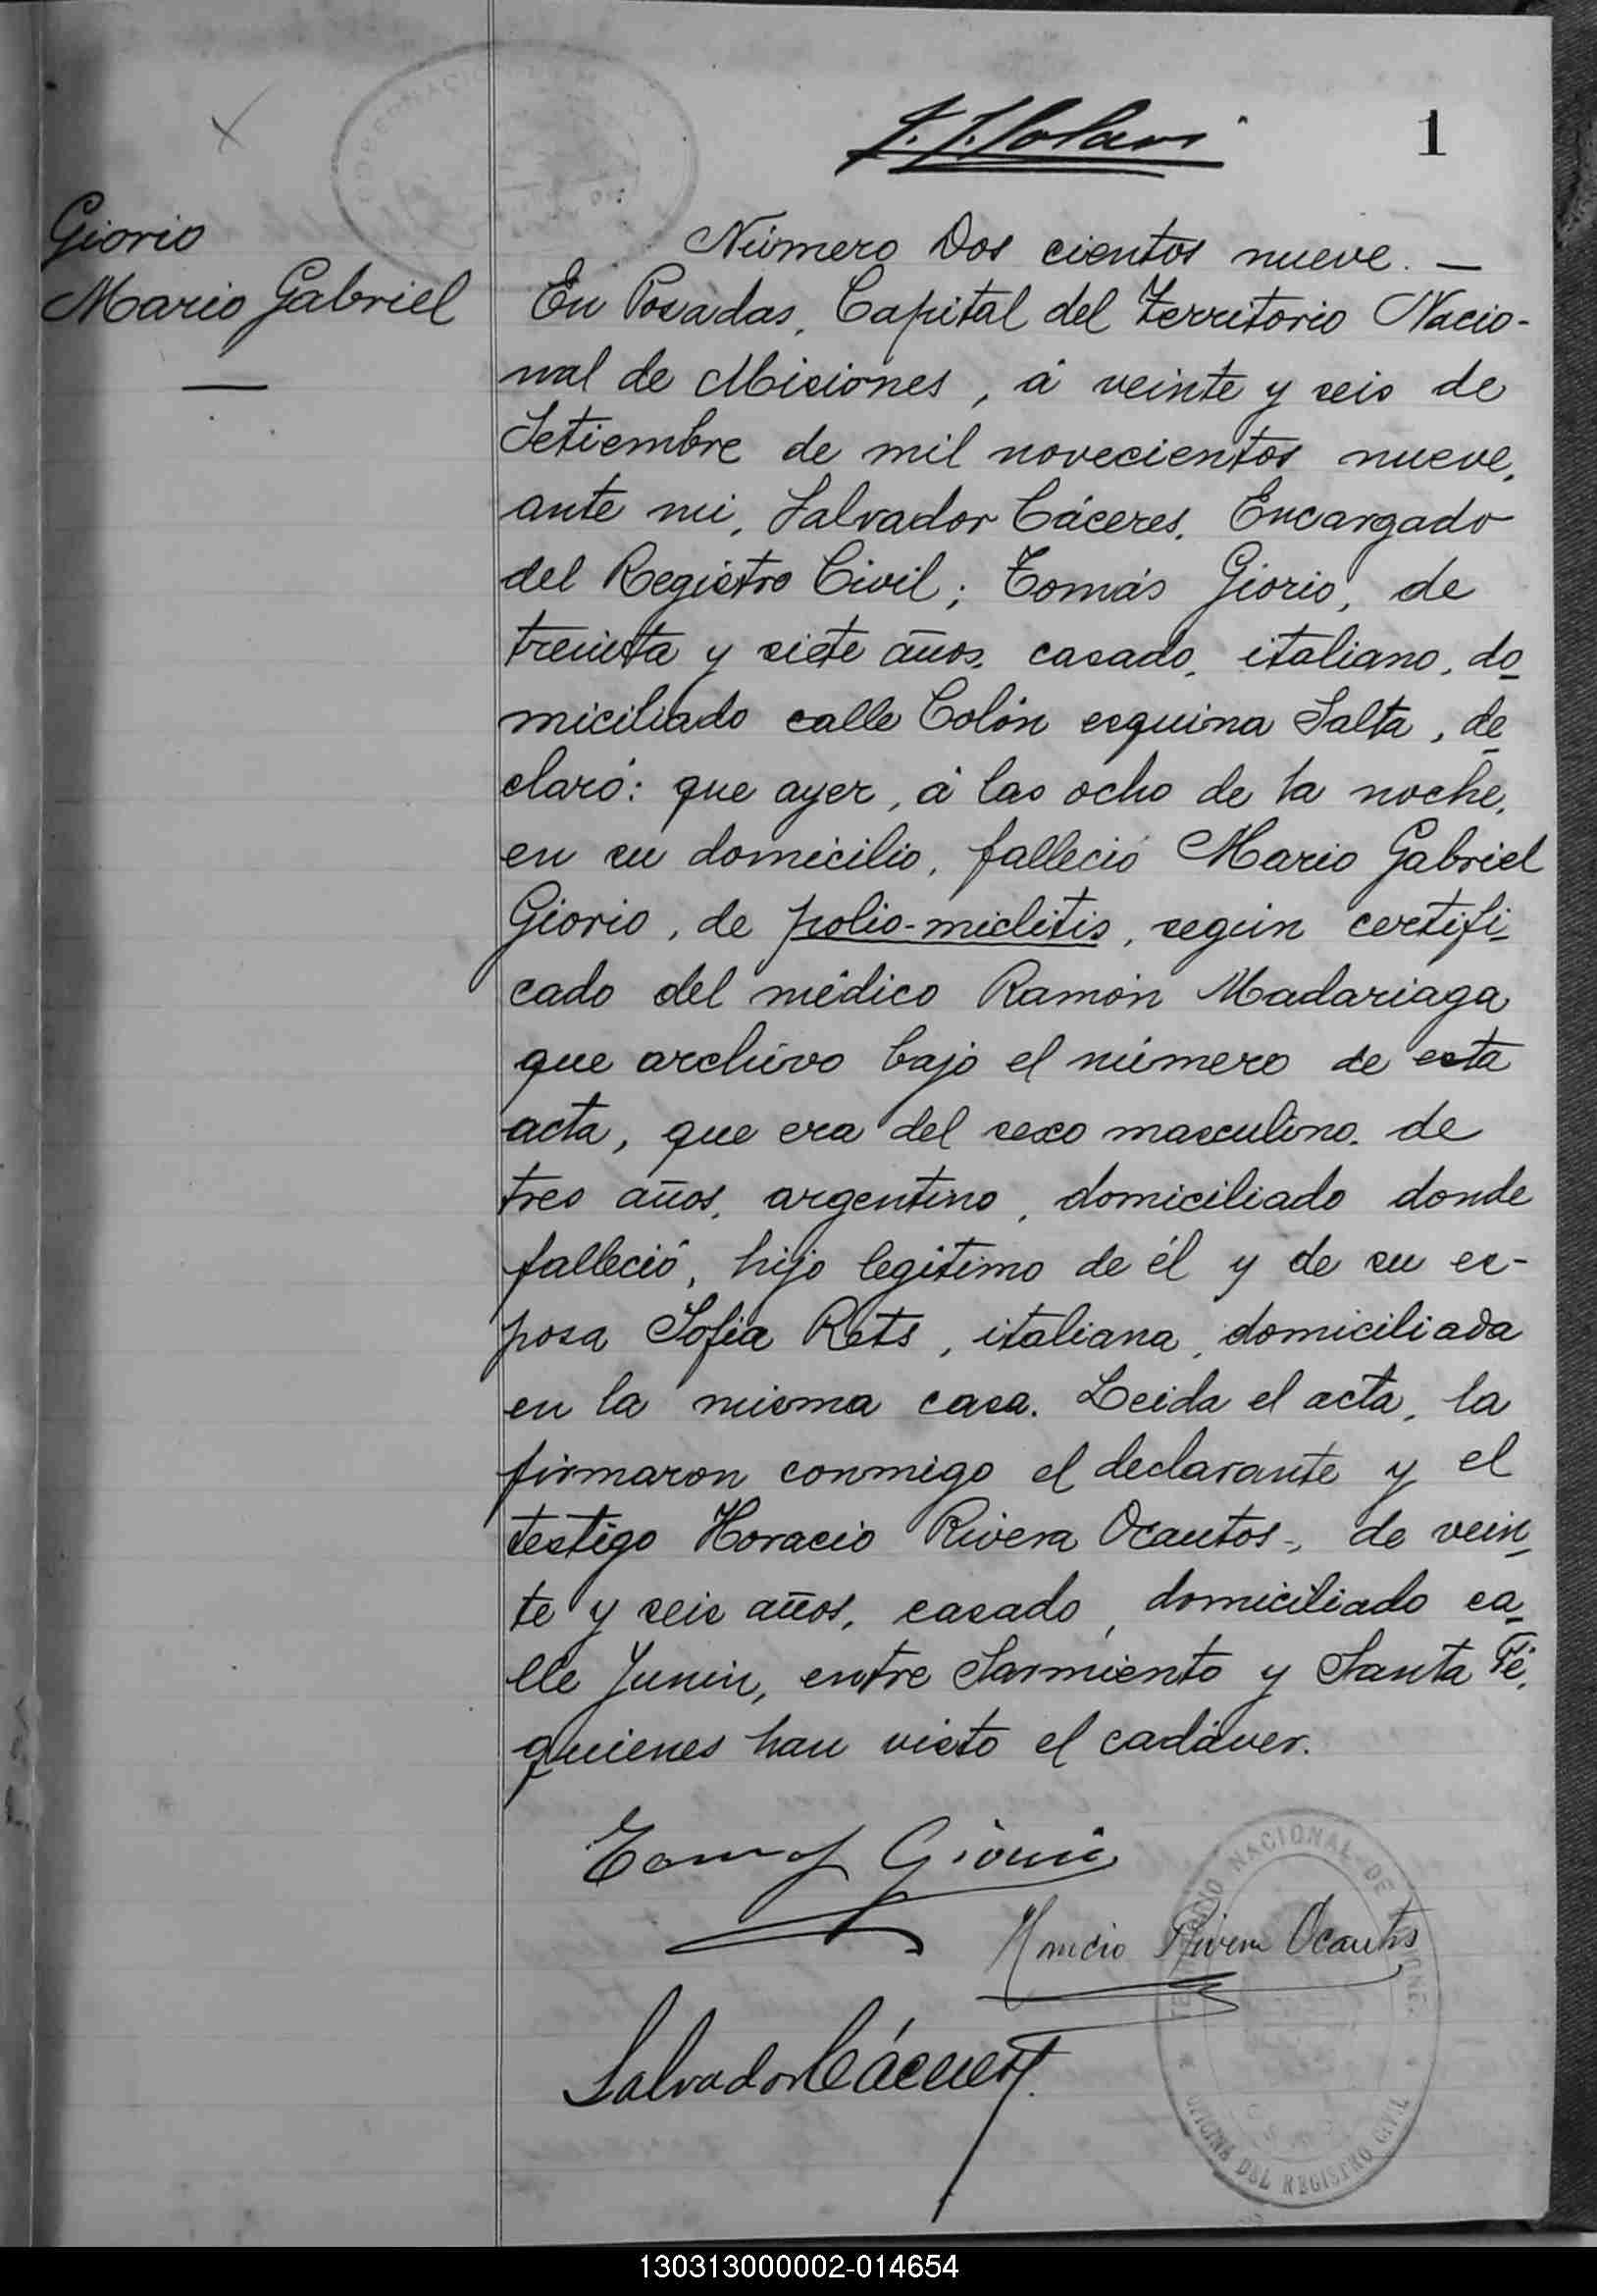 1
Giorio
Mario Gabriel
Número Dos cientos nueve. —
En Posadas, Capital del Territorio Nacio-
nal de Misiones, á veinte y seis de
Setiembre de mil novecientos nueve,
ante mi, Salvador Cáceres, Encargado
del Registro Civil; Tomás Giorio, de
treinta y siete años, casado, italiano, do
miciliado calle Colón esquina Salta, de
claró: que ayer, á las ocho de la noche,
en su domicilio, falleció Mario Gabriel
Giorio, de polio-mielitis, según certifi
cado del médico Ramón Madariaga
que archivo bajo el número de esta
acta, que era del sexo masculino, de
tres años, argentino, domiciliado donde
falleció, hijo legítimo de él y de su es-
posa Sofia Rets, italiana, domiciliada
en la misma casa. Leida el acta, la
firmaron conmigo el declarante y el
testigo Horacio Rivera Ocantos-, de vein
te y seis años, casado, domiciliado ca
lle Junin, entre Sarmiento y Santa Fé,
quienes han visto el cadáver.
Tomas Giorio
Horacio Rivera Ocantos
Salvador Cáceres
TERRITORIO NACIONAL DE MISIONES
OFICINA DEL REGISTRO CIVIL
130313000002-014654